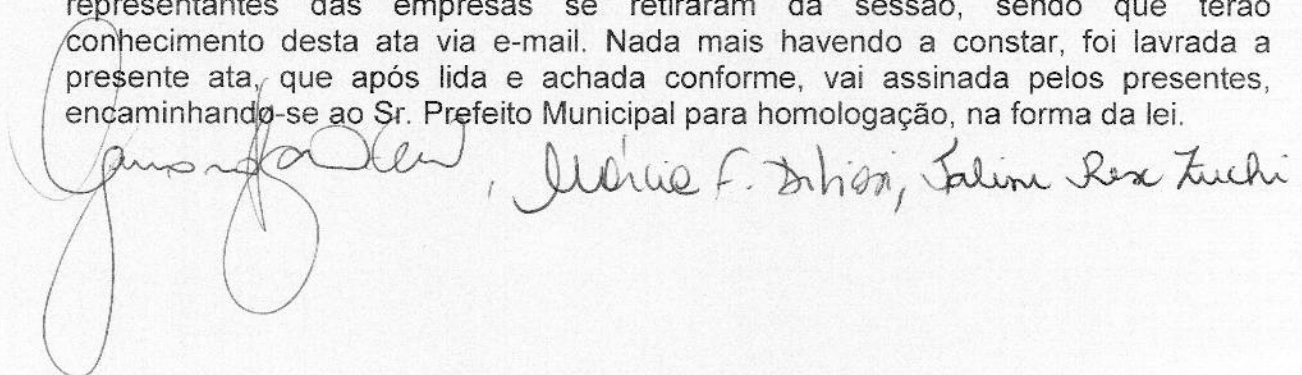 representantes das empresas se retiraram da sessão, sendo que terão
conhecimento desta ata via e-mail. Nada mais havendo a constar, foi lavrada a
presente ata, que após lida e achada conforme, vai assinada pelos presentes,
encaminhando-se ao Sr. Prefeito Municipal para homologação, na forma da lei.
, Márcia F. Zuchi